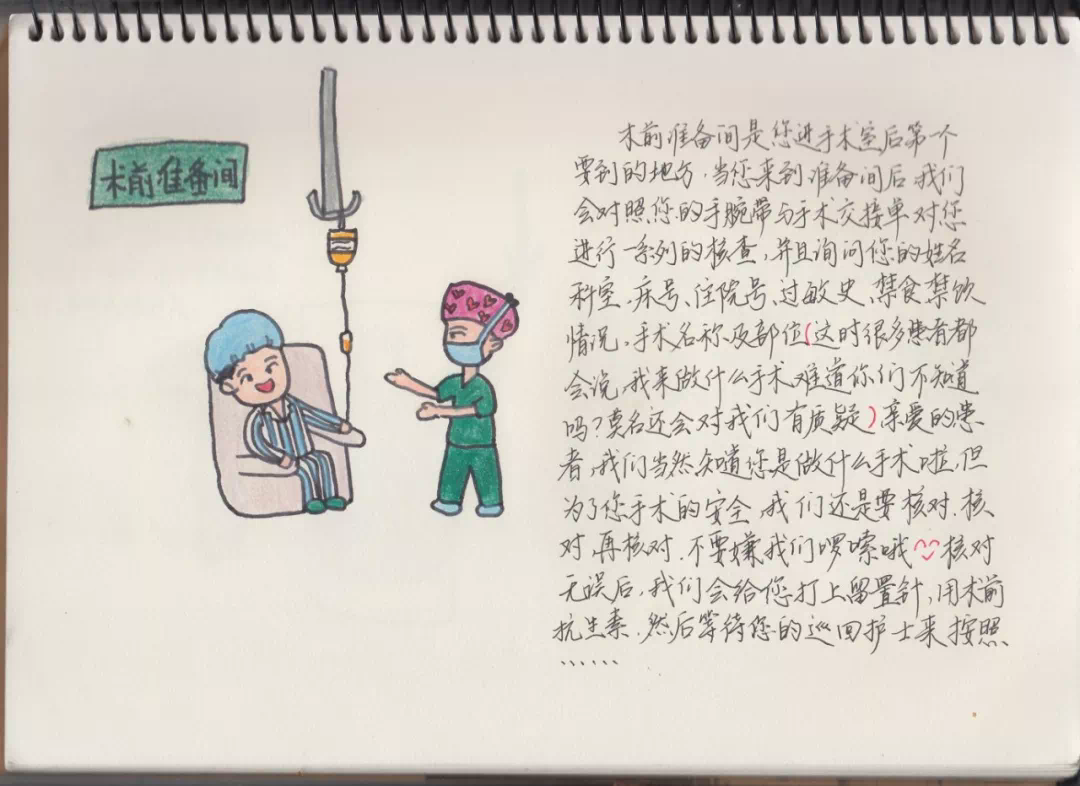 术前准备间
术前准备间是您进手术室后第一个
要到的地方,当您来到准备间后,我们
会对照您的手腕带与手术交接单对您
进行一系列的核查,并且询问您的姓名
科室、床号、住院号、过敏史、禁食禁饮
情况、手术名称及部位(这时很多患者都
会说,我来做什么手术难道你们不知道
吗?莫名还会对我们有质疑)亲爱的患
者,我们当然知道您是做什么手术啦,但
为了您手术的安全,我们还是要核对,核
对,再核对,不要嫌我们啰嗦哦 核对
无误后,我们会给您打上留置针,用术前
抗生素,然后等待您的巡回护士来按照
……